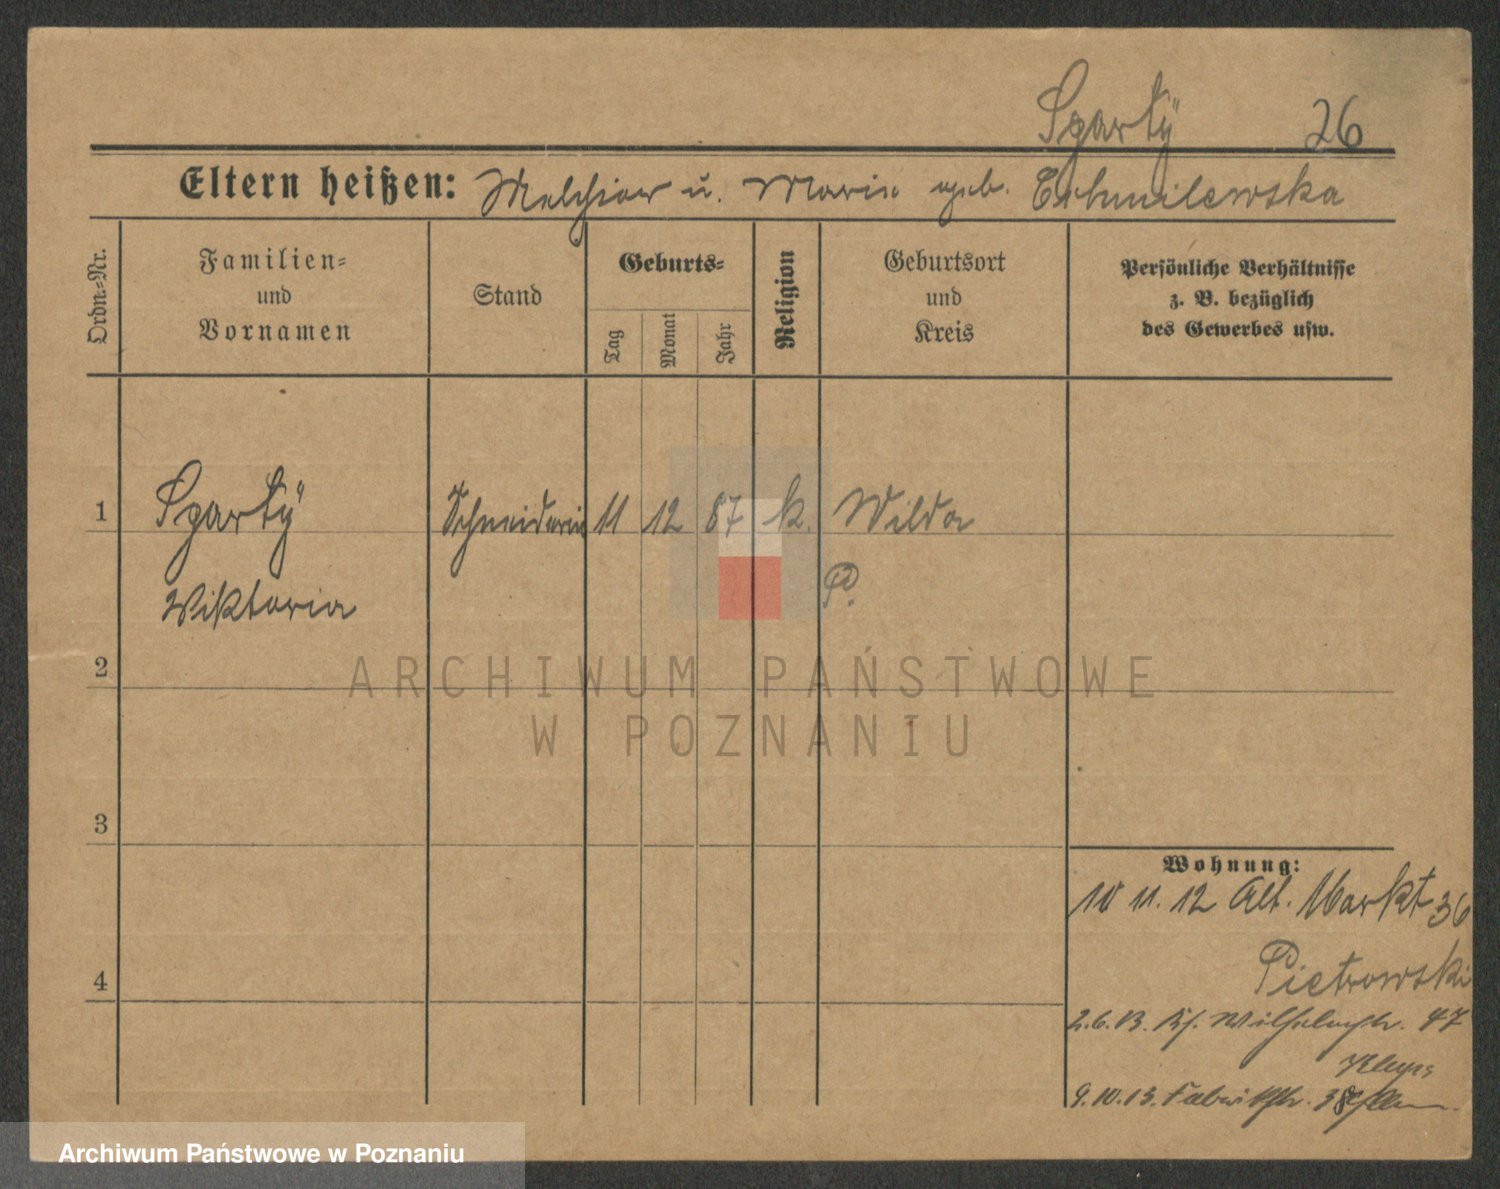 Sgartÿ 26
Eltern heißen: Melchior u. Marie geb.
Ordn.-Nr.
Familien-
und
Vornamen
Stand
Geburts-
Tag
Monat
Jahr
Religion
Geburtsort
und
Kreis
Persönliche Verhältnisse
z. B. bezüglich
des Gewerbes usw.
1 Sgartÿ Schneiderin 11 12 87 k. Wilda
Wiktoria P.
2
3
4
Wohnung:
10 11. 12 Alt. Markt 36
Pietrowski
2.6.13. Kr. Wilhelmstr. 47
9.10.13. Fabrikstr.
ARCHIWUM PAŃSTWOWE
W POZNANIU
Archiwum Państwowe w Poznaniu